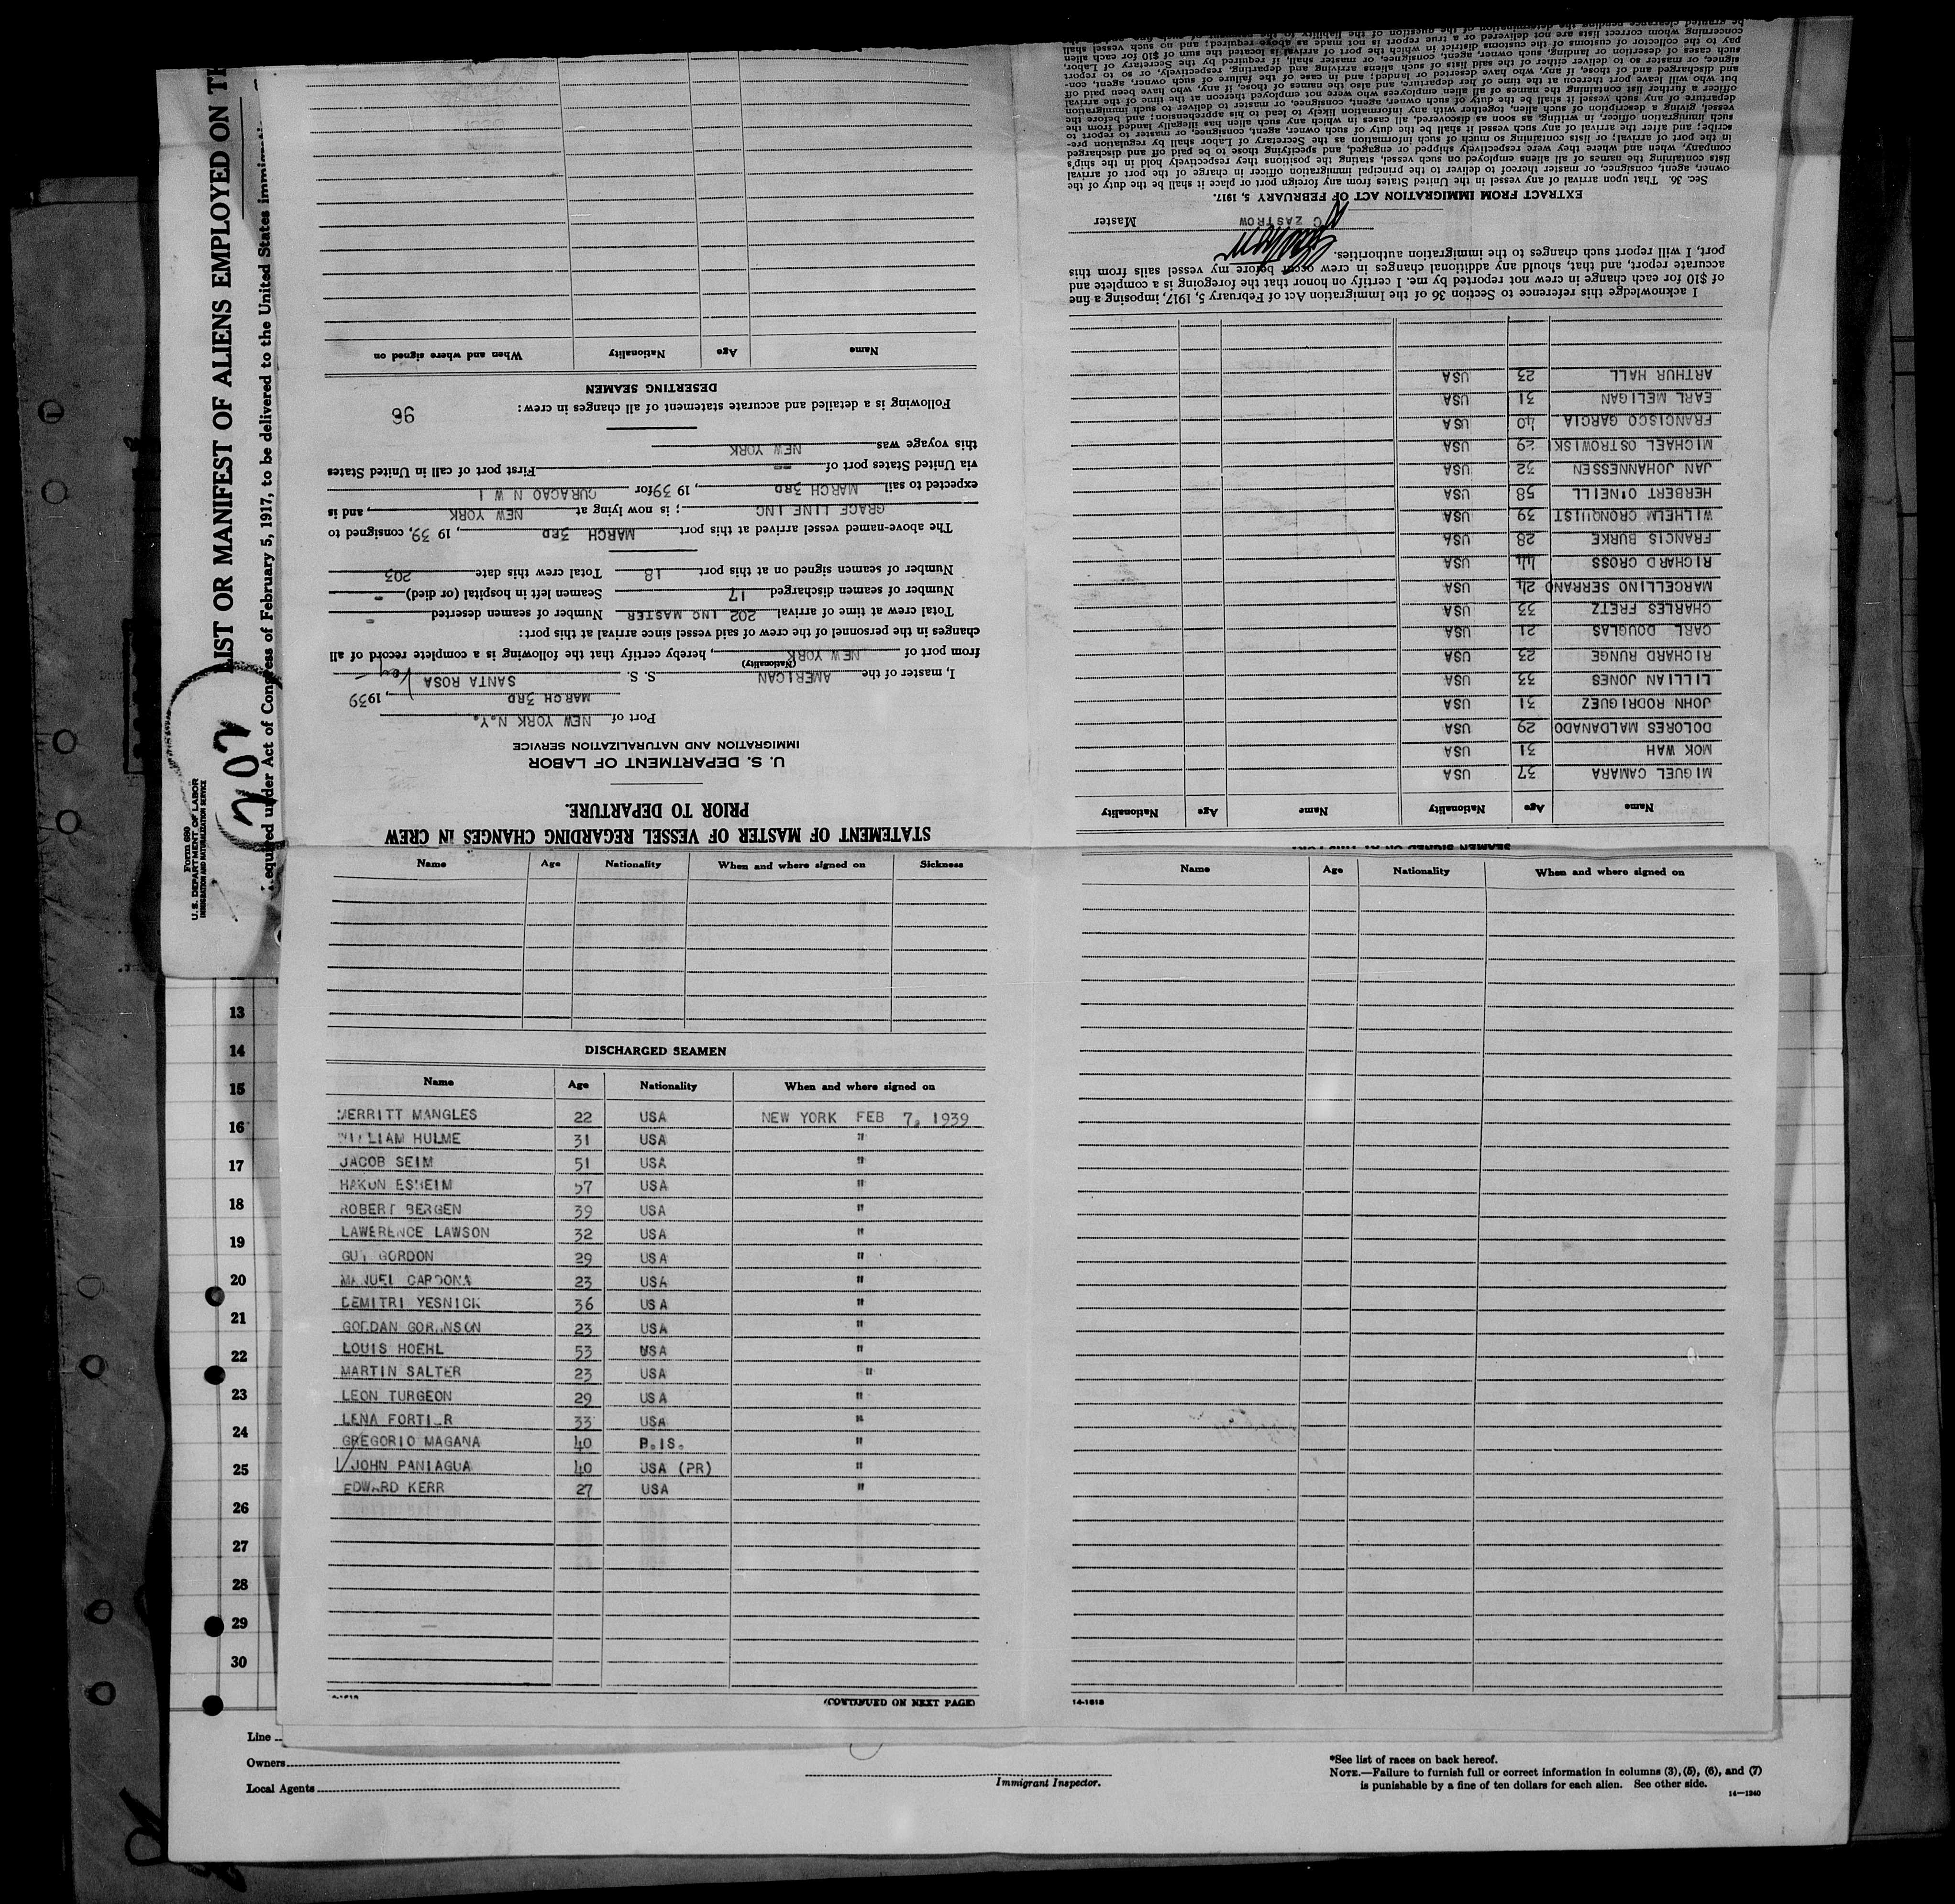 Form 680
U.S. DEPARTMENT OF LABOR
IMMIGRATION AND NATURALIZATION SERVICE
202
LIST OR MANIFEST OF ALIENS EMPLOYED ON
Required under Act of Congress of February 5, 1917, to be delivered to the United States
STATEMENT OF MASTER OF VESSEL REGARDING CHANGES IN CREW
PRIOR TO DEPARTURE.
U. S. DEPARTMENT OF LABOR
IMMIGRATION AND NATURALIZATION SERVICE
Port of NEW YORK N.Y.
MARCH 3RD, 1939
I, master of the AMERICAN S. S. SANTA ROSA
(Nationality)
from port of NEW YORK, hereby certify that the following is a complete record of all
changes in the personnel of the crew of said vessel since arrival at this port:
Total crew at time of arrival 202 INC MASTER Number of seamen deserted -
Number of seamen discharged 17 Seamen left in hospital (or died) -
Number of seamen signed on at this port 18 Total crew this date 203
The above-named vessel arrived at this port MARCH 3RD, 1939, consigned to
GRACE LINE INC; is now lying at NEW YORK, and is
expected to sail MARCH 3RD, 1939 for CURACAO N W I
via United States port of -- First port of call in United States
this voyage was NEW YORK
Following is a detailed and accurate statement of all changes in crew:
96
DESERTING SEAMEN
Name Age Nationality When and where signed on
Name Age Nationality When and where signed on Sickness
DISCHARGED SEAMEN
Name Age Nationality When and where signed on
MERRITT MANGLES 22 USA NEW YORK FEB 7, 1939
WILLIAM HULME 31 USA "
JACOB SEIM 51 USA "
HAKON ESHEIM 57 USA "
ROBERT BERGEN 39 USA "
LAWERENCE LAWSON 32 USA "
GUY GORDON 29 USA "
MANUEL CARDONA 23 USA "
DEMITRI YESNICK 36 USA "
23 USA "
LOUIS HOEHL 53 USA "
MARTIN SALTER 23 USA "
LEON TURGEON 29 USA "
LENA FORTIER 33 USA "
GREGORIO MAGANA 40 P.IS. "
JOHN PANIAGUA 40 USA (PR) "
EDWARD KERR 27 USA "
(CONTINUED ON NEXT PAGE)
Name Age Nationality When and where signed on
14-1618
SEAMEN SIGNED ON AT THIS PORT
Name Age Nationality Name Age Nationality
MIGUEL CAMARA 37 USA
MOK WAH 31 USA
DOLORES MALDANADO 29 USA
JOHN RODRIGUEZ 31 USA
LILLIAN JONES 33 USA
RICHARD RUNGE 23 USA
CARL DOUGLAS 21 USA
CHARLES FRETZ 33 USA
MARCELLINO SERRANO 24 USA
RICHARD CROSS 44 USA
FRANCIS BURKE 28 USA
WILHELM CRONQUIST 39 USA
HERBERT O'NEILL 58 USA
JAN JOHANNESSEN 32 USA
MICHAEL OSTROWISKI 29 USA
FRANCISCO GARCIA 40 USA
EARL MELIGAN 31 USA
ARTHUR HALL 23 USA
I acknowledge this reference to Section 36 of the Immigration Act of February 5, 1917, imposing a fine
of $10 for each change in crew not reported by me. I certify on honor that the foregoing is a complete and
accurate report, and that, should any additional changes in crew occur before my vessel sails from this
port, I will report such changes to the immigration authorities.
C ZASTROW Master
EXTRACT FROM IMMIGRATION ACT OF FEBRUARY 5, 1917.
Sec. 36. That upon arrival of any vessel in the United States from any foreign port or place it shall be the duty of the
owner, agent, consignee, or master thereof to deliver to the principal immigration officer in charge of the port of arrival
lists containing the names of all aliens employed on such vessel, stating the positions they respectively hold in the ship's
company, when and where they were respectively shipped or engaged, and specifying those to be paid off and discharged
in the port of arrival; or lists containing so much of such information as the Secretary of Labor shall by regulation pre-
scribe; and after the arrival of any such vessel it shall be the duty of such owner, agent, consignee, or master to report to
such immigration officer, in writing, as soon as discovered, all cases in which any such alien has illegally landed from the
vessel, giving a description of such alien, together with any information likely to lead to his apprehension; and before the
departure of any such vessel it shall be the duty of such owner, agent, consignee, or master to deliver to such immigration
officer a further list containing the names of all alien employees who were not employed thereon at the time of the arrival
but who will leave port thereon at the time of her departure, and also the names of those, if any, who have been paid off
and discharged and of those, if any, who have deserted or landed; and in case of the failure of such owner, agent, con-
signee, or master so to deliver either of the said lists of such aliens arriving and departing, respectively, or so to report
such cases of desertion or landing, such owner, agent, consignee, or master shall, if required by the Secretary of Labor,
pay to the collector of customs of the customs district in which the port of arrival is located the sum of $10 for each alien
concerning whom correct lists are not delivered or a true report is not made as above required; and no such vessel shall
be granted clearance pending the determination of the question of the liability to the payment of such fine
13
14
15
16
17
18
19
20
21
22
23
24
25
26
27
28
29
30
Line
Owners
Local Agents
Immigrant Inspector.
*See list of races on back hereof.
NOTE.—Failure to furnish full or correct information in columns (3), (5), (6), and (7)
is punishable by a fine of ten dollars for each alien. See other side.
14—1240